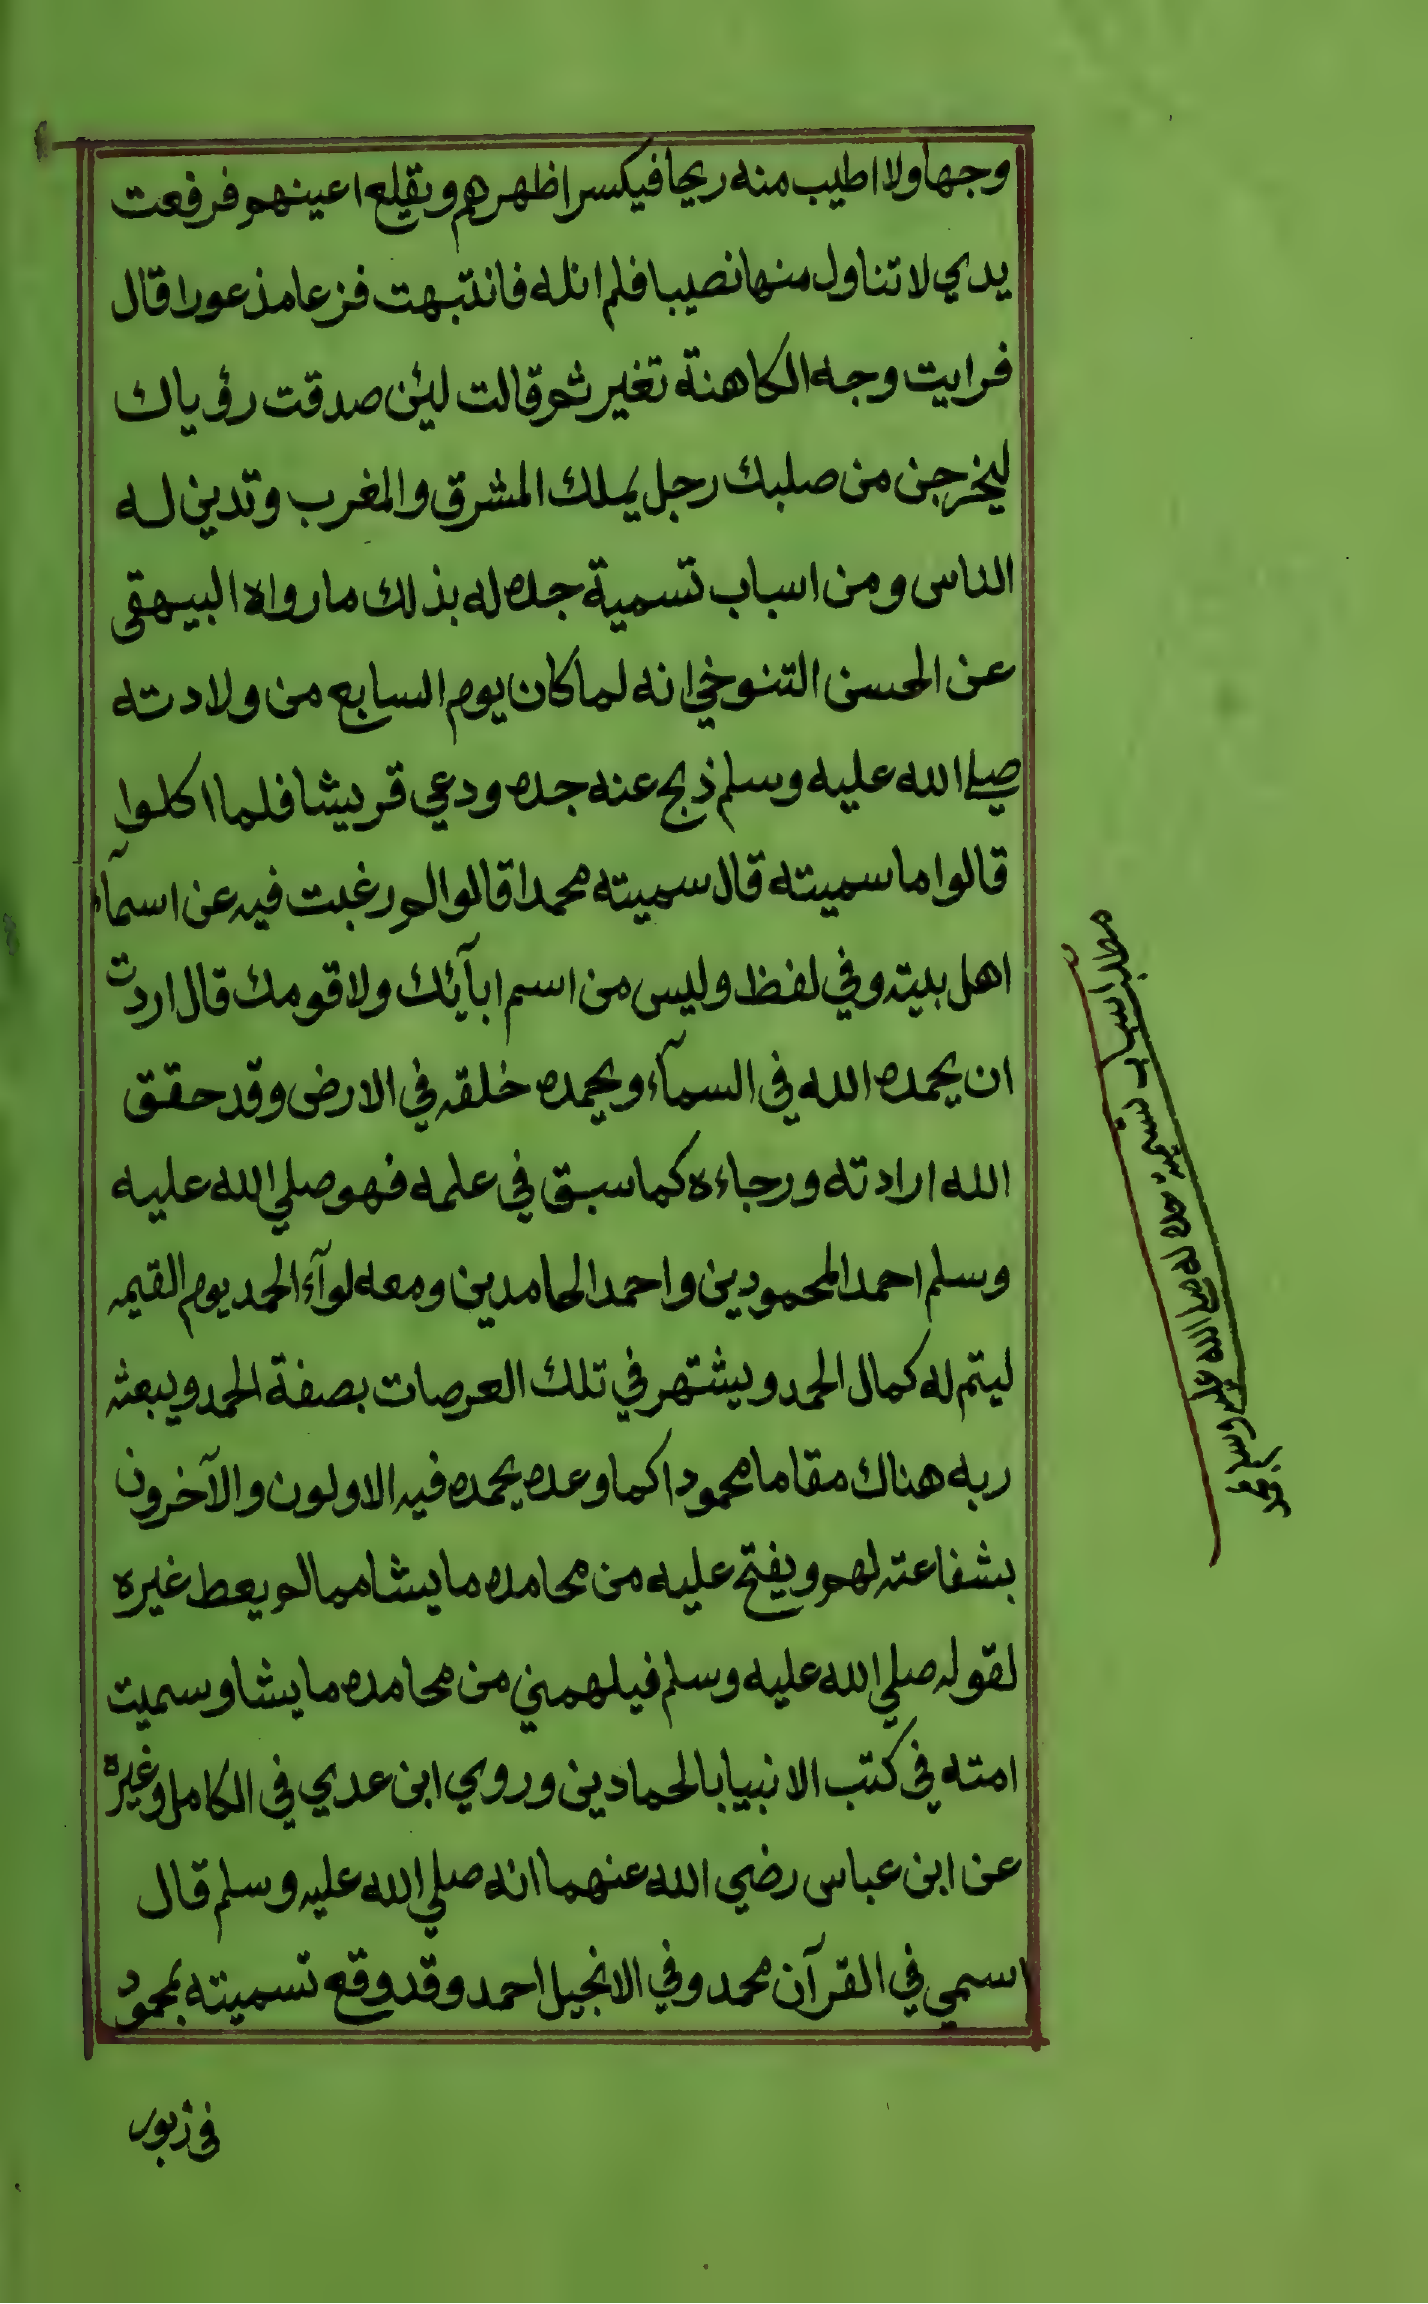 وجها ولا اطيب منه ريحا فيكسر اظهرهم ويقلع اعينهم فرفعت
يدي لاتناول منها نصيبا فلم انله فانتبهت فزعا مذعورا قال
فرايت وجه الكاهنة تغير ثم قالت لئن صدقت رؤياك
ليخرجن من صلبك رجل يملك المشرق والمغرب وتدين له
الناس ومن اسباب تسمية جده له بذلك ما رواه البيهقي
عن الحسن التنوخي انه لما كان يوم السابع من ولادته
صلى الله عليه وسلم ذبح عنه جده ودعي قريشا فلما اكلوا
قالوا ما سميته قال سميته محمدا قالوا لم رغبت فيه عن اسمآء
اهل بيته وفي لفظ وليس من اسم ابآئك ولا قومك قال اردت
ان يحمده الله في السمآء ويحمده خلقه في الارض وقد حقق
الله ارادته ورجاءه كما سبق في علمه فهو صلي الله عليه
وسلم احمد المحمودين واحمد الحامدين ومعه لوآء الحمد يوم القيمه
ليتم له كمال الحمد ويشتهر في تلك العرصات بصفة الحمد ويبعثه
ربه هناك مقاما محمودا كما وعده يحمده فيه الاولون والآخرون
بشفاعته لهم ويفتح عليه من محامده ما يشا مما لم يعط غيره
لقوله صلي الله عليه وسلم فيلهمني من محامده ما يشا وسميت
امته في كتب الانبيا بالحمادين وروي ابن عدي في الكامل وغيره
عن ابن عباس رضي الله عنهما انه صلي الله عليه وسلم قال
اسمي في القرآن محمد وفي الانجيل احمد وقد وقع تسميته بمحمود
في زبور
مطلب اسباب تسمية جده له صلى الله عليه وسلم بمحمد